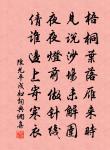 梧桐葉落雁来時
見說沙場未解圍
夜夜燈前做針線
倩誰邊上寄寒衣
陳允平戍婦詞與網友